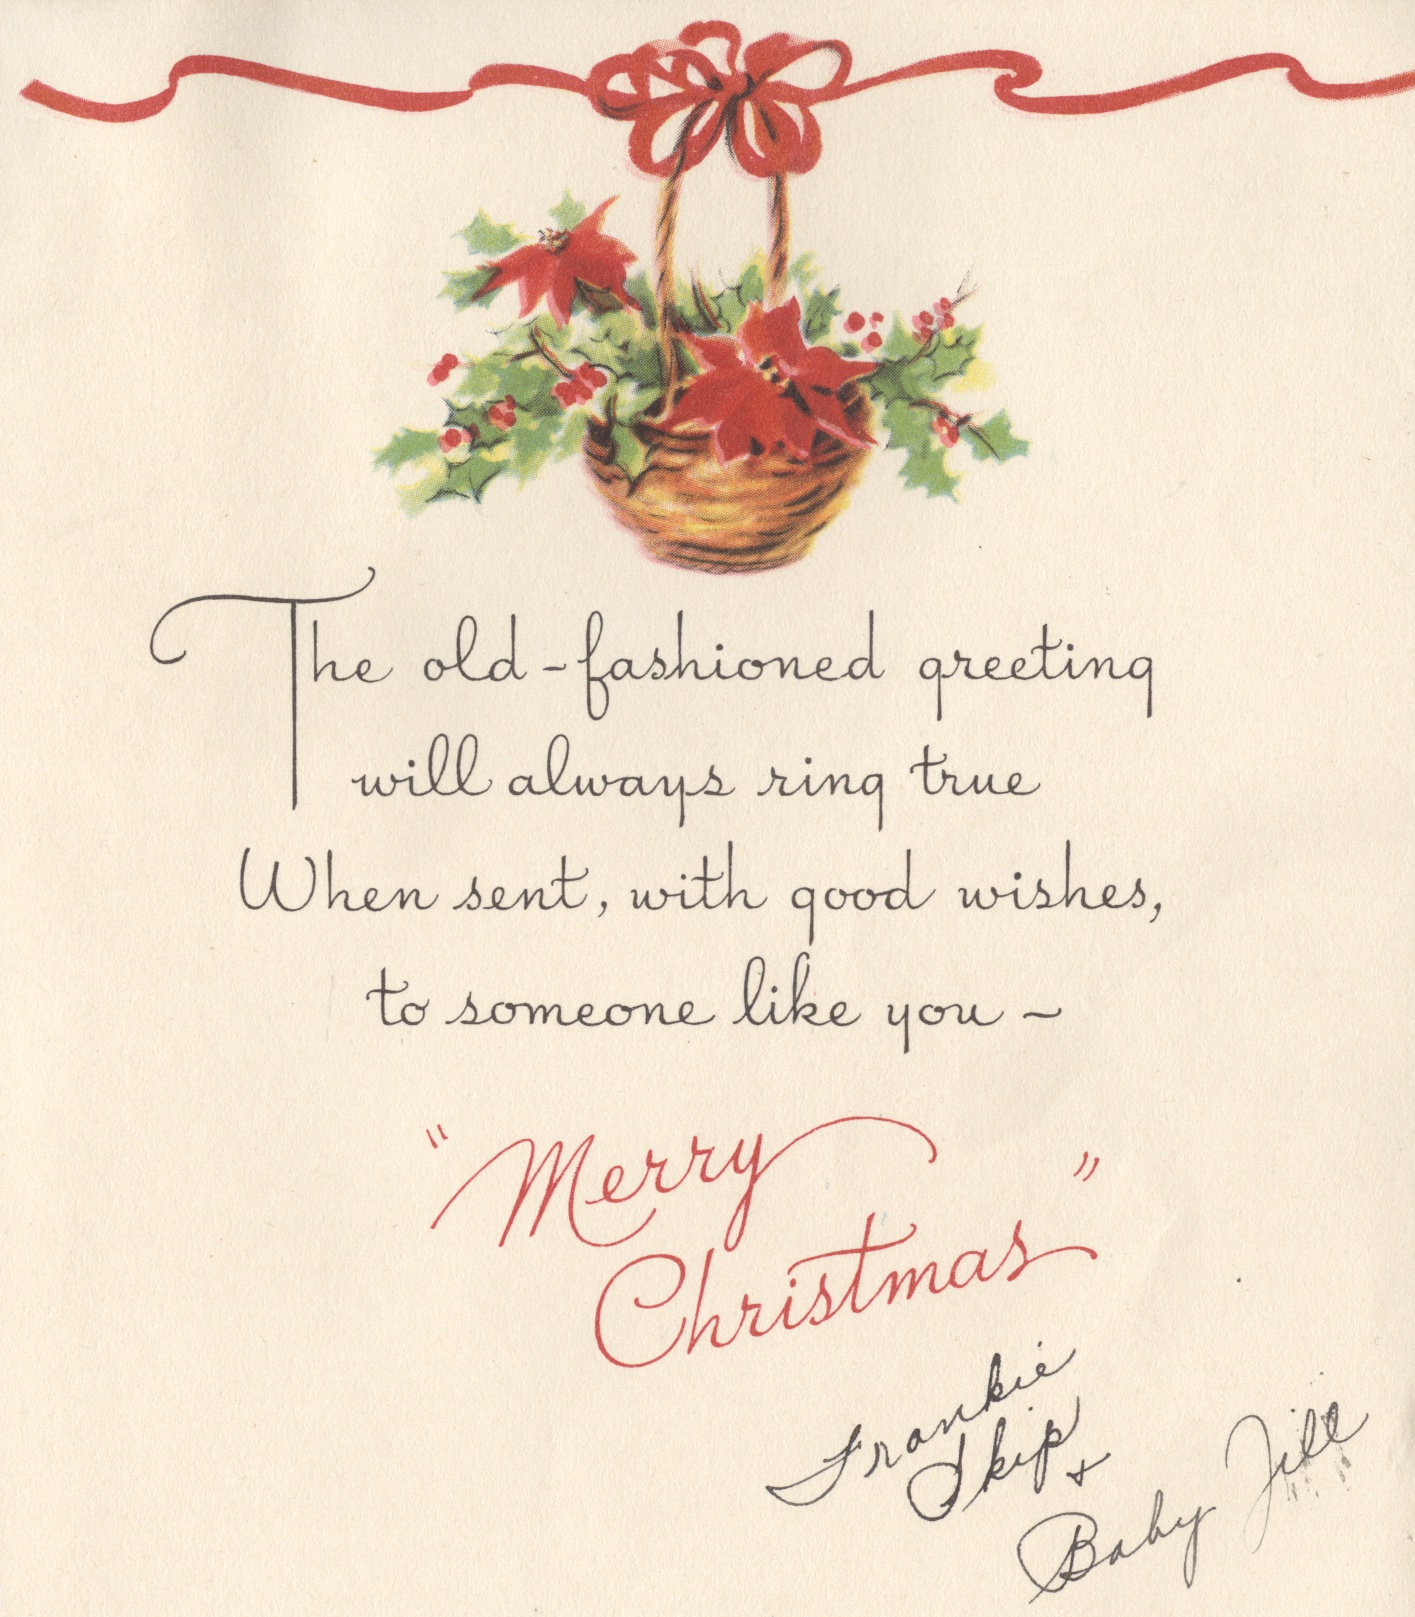 The old-fashioned greeting
will always ring true
When sent, with good wishes,
to someone like you -
"Merry
Christmas"
Frankie
Skip +
Baby Jill